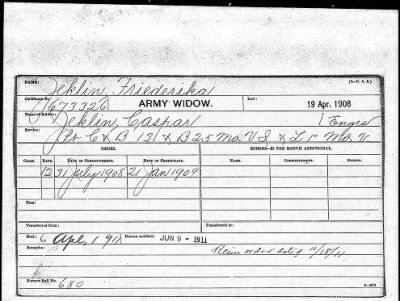 NAME: Jeklin, Friederika (3—U. A. S.)
Certificate No. 673326 ARMY WIDOW. Law: 19 Apr. 1908
Name of Soldier: Jeklin, Caspar 1 Engrs
Service: Pvt C & B 13 & B 25 Mo. V S & L 1" Mo. V
ISSUE. MINORS—$2 PER MONTH ADDITIONAL.
CLASS. RATE. DATE OF COMMENCEMENT. DATE OF CERTIFICATE.
12 31 July 1908 21 Jan 1909
Transferred from: Transferred to:
Died 6 Apl, 1911 Bureau notified: JUN 9 - 1911
Remarks: Reim order dated 11/18/11
Former Roll No. 680